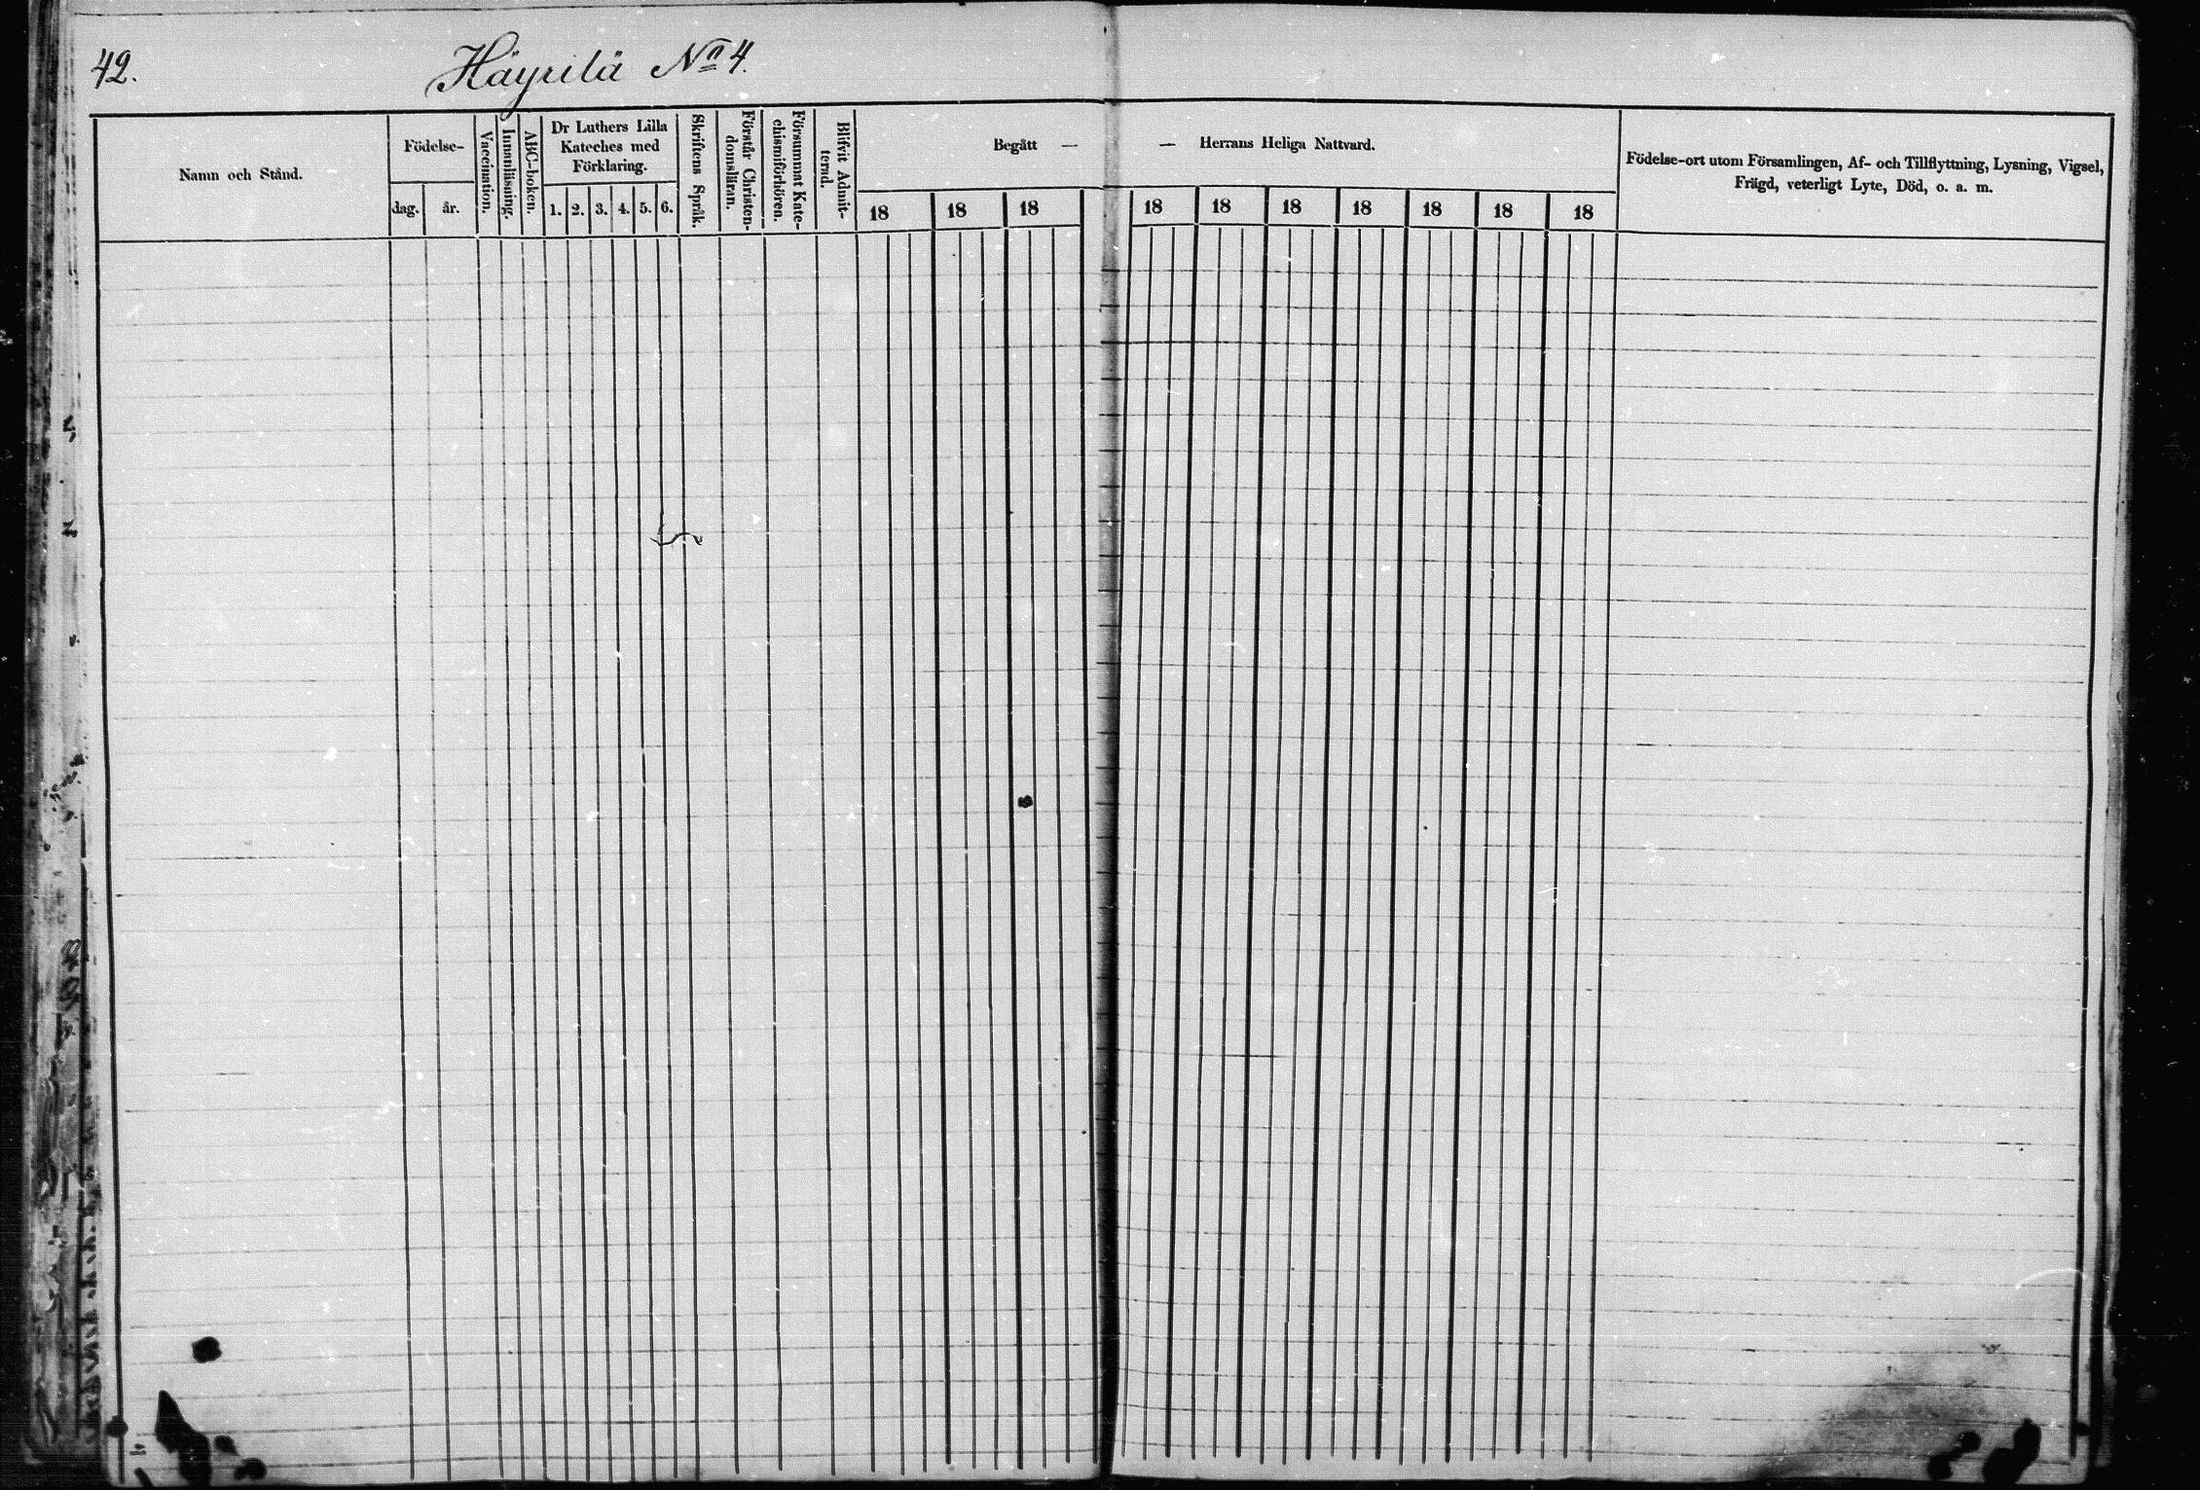 42.
Häyrilä No 4.
Namn och Stånd.
Födelse-
dag.
år.
Vaccination.
Innanläsning.
ABC-boken.
Dr Luthers Lilla
Kateches med
Förklaring.
1. 2. 3. 4. 5. 6.
Skriftens Språk.
Förstår Christen-
domsläran.
Försummat Kate-
chismiförhören.
Blifvit Admit-
terad.
Begått — — Herrans Heliga Nattvard.
18 18 18 18 18 18 18 18 18 18
Födelse-ort utom Församlingen, Af- och Tillflyttning, Lysning, Vigsel,
Frägd, veterligt Lyte, Död, o. a. m.